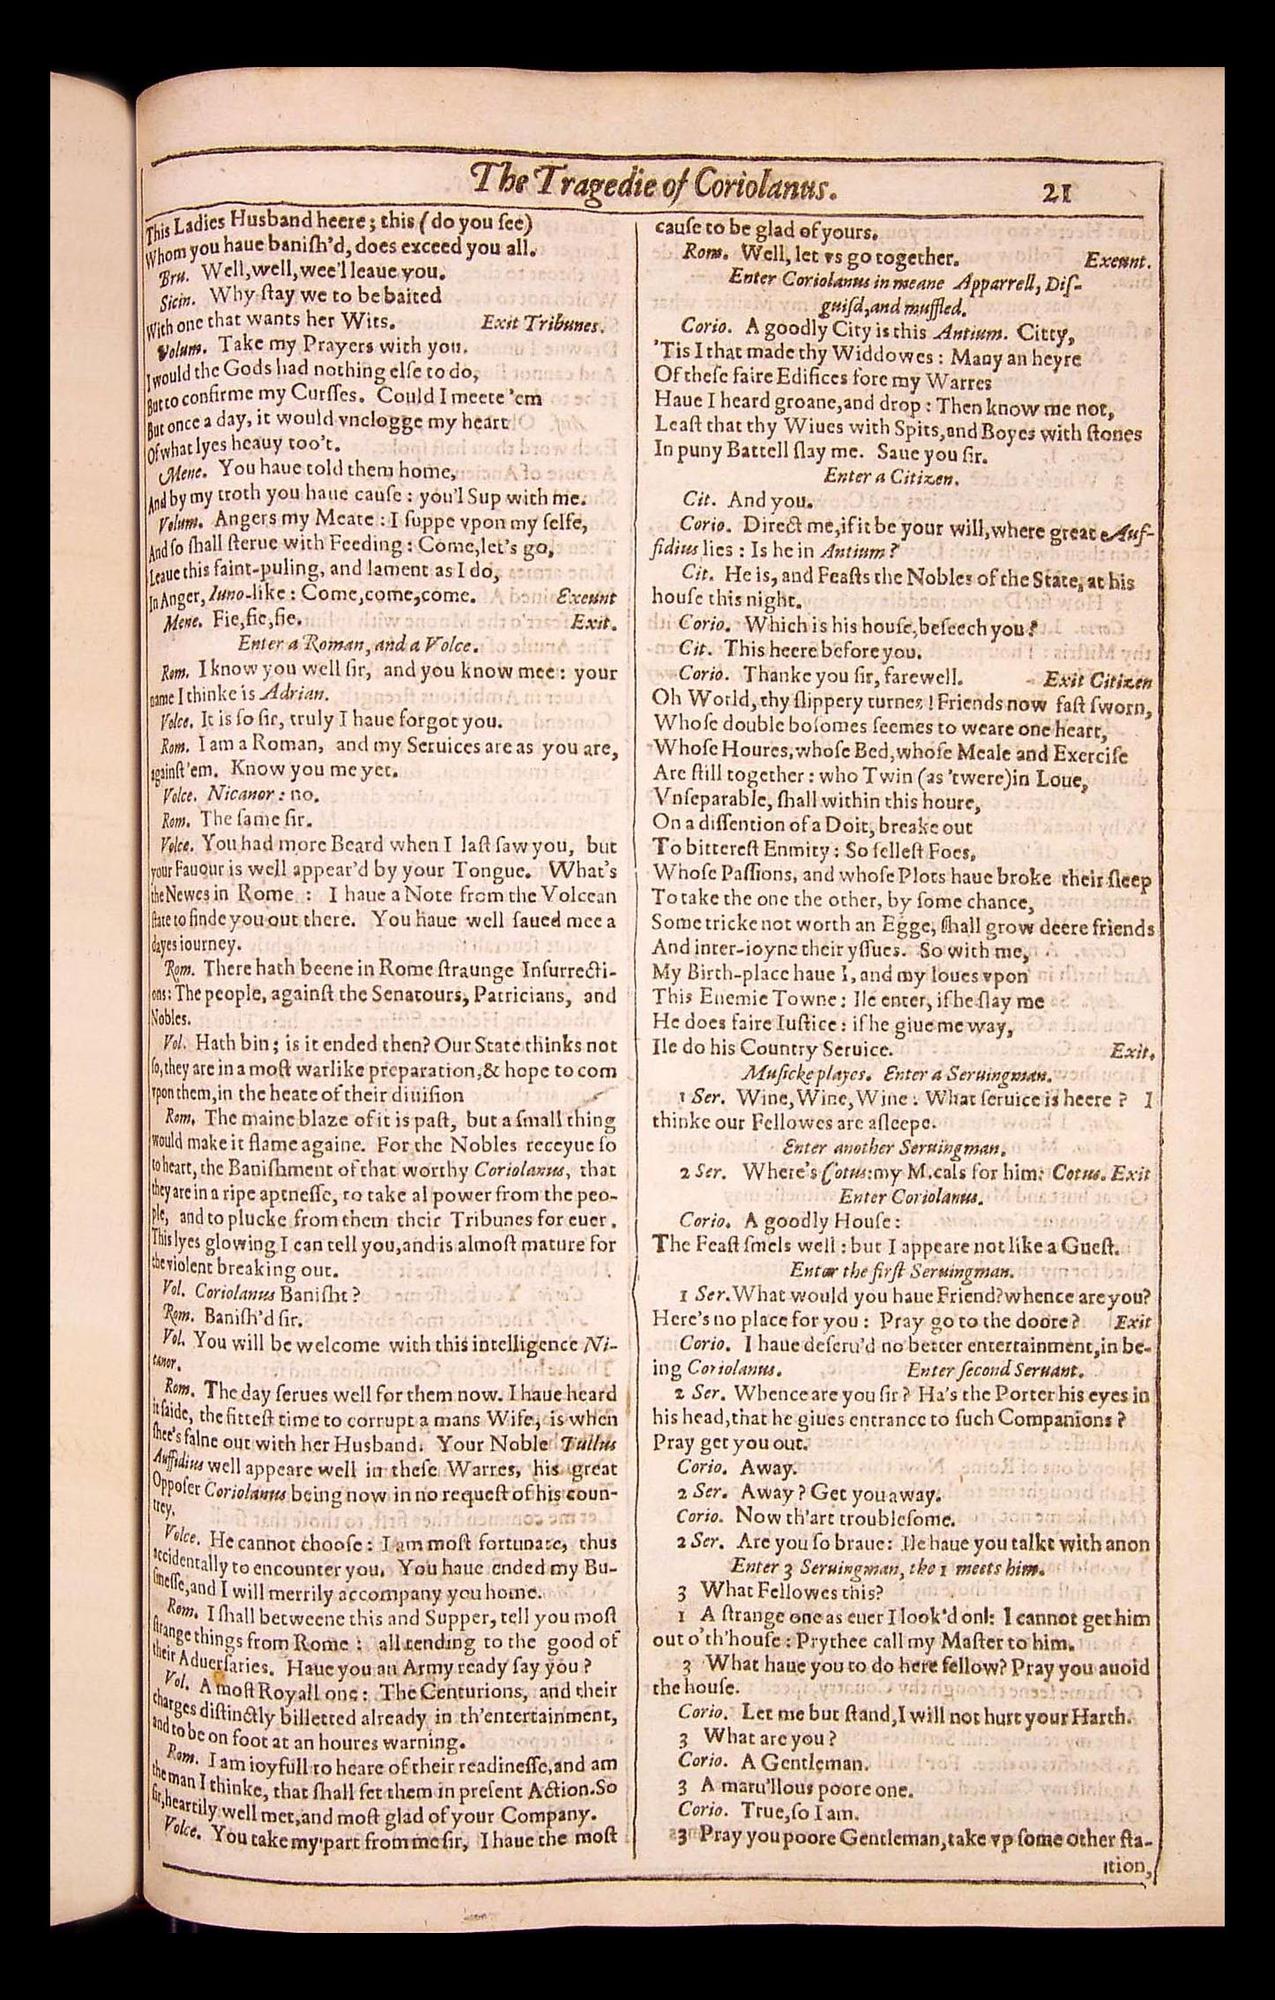 The Tragedie of Coriolanus. 21
This Ladies Husband heere; this (do you ſee)
Whom you haue baniſh'd, does exceed you all.
Bru. Well, well, wee'l leaue you.
Sicin. Why ſtay we to be baited
With one that wants her Wits. Exit Tribunes.
Volum. Take my Prayers with you.
I would the Gods had nothing elſe to do,
But to confirme my Curſſes. Could I meete 'em
But once a day, it would vnclogge my heart
Of what lyes heauy too't.
Mene. You haue told them home,
And by my troth you haue cauſe: you'l Sup with me.
Volum. Angers my Meate: I ſuppe vpon my ſelfe,
And ſo ſhall ſterue with Feeding: Come, let's go,
Leaue this faint-puling, and lament as I do,
In Anger, Iuno-like: Come, come, come. Exeunt
Mene. Fie, fie, fie. Exit.
Enter a Roman, and a Volce.
Rom. I know you well ſir, and you know mee: your
name I thinke is Adrian.
Volce. It is ſo ſir, truly I haue forgot you.
Rom. I am a Roman, and my Seruices are as you are,
againſt'em. Know you me yet.
Volce. Nicanor: no.
Rom. The ſame ſir.
Volce. You had more Beard when I laſt ſaw you, but
your Fauour is well appear'd by your Tongue. What's
the Newes in Rome: I haue a Note from the Volcean
ſtate to finde you out there. You haue well ſaued mee a
dayes iourney.
Rom. There hath beene in Rome ſtraunge Inſurrecti-
ons: The people, againſt the Senatours, Patricians, and
Nobles.
Vol. Hath bin; is it ended then? Our State thinks not
ſo, they are in a moſt warlike preparation, & hope to com
vpon them, in the heate of their diuiſion
Rom. The maine blaze of it is paſt, but a ſmall thing
would make it flame againe. For the Nobles receyue ſo
to heart, the Baniſhment of that worthy Coriolanus, that
they are in a ripe aptneſſe, to take al power from the peo-
ple, and to plucke from them their Tribunes for euer.
This lyes glowing I can tell you, and is almoſt mature for
the violent breaking out.
Vol. Coriolanus Baniſht?
Rom. Baniſh'd ſir.
Vol. You will be welcome with this intelligence Ni-
canor.
Rom. The day ſerues well for them now. I haue heard
it ſaide, the fitteſt time to corrupt a mans Wife, is when
ſhee's falne out with her Husband. Your Noble Tullus
Auffidius well appeare well in theſe Warres, his great
Oppoſer Coriolanus being now in no requeſt of his coun-
trey.
Volce. He cannot chooſe: I am moſt fortunate, thus
accidentally to encounter you. You haue ended my Bu-
ſineſſe, and I will merrily accompany you home.
Rom. I ſhall betweene this and Supper, tell you moſt
ſtrange things from Rome: all tending to the good of
their Aduerſaries. Haue you an Army ready ſay you?
Vol. A moſt Royall one: The Centurions, and their
charges diſtinctly billetted already in th'entertainment,
and to be on foot at an houres warning.
Rom. I am ioyfull to heare of their readineſſe, and am
the man I thinke, that ſhall ſet them in preſent Action. So
ſir, heartily well met, and moſt glad of your Company.
Volce. You take my part from me ſir, I haue the moſt
cauſe to be glad of yours.
Rom. Well, let vs go together. Exeunt.
Enter Coriolanus in meane Apparrell, Diſ-
guiſd, and muffled.
Corio. A goodly City is this Antium. Citty,
'Tis I that made thy Widdowes: Many an heyre
Of theſe faire Edifices fore my Warres
Haue I heard groane, and drop: Then know me not,
Leaſt that thy Wiues with Spits, and Boyes with ſtones
In puny Battell ſlay me. Saue you ſir.
Enter a Citizen.
Cit. And you.
Corio. Direct me, if it be your will, where great Auf-
fidius lies: Is he in Antium?
Cit. He is, and Feaſts the Nobles of the State, at his
houſe this night.
Corio. Which is his houſe, beſeech you?
Cit. This heere before you.
Corio. Thanke you ſir, farewell. Exit Citizen
Oh World, thy ſlippery turnes! Friends now faſt ſworn,
Whoſe double boſomes ſeemes to weare one heart,
Whoſe Houres, whoſe Bed, whoſe Meale and Exerciſe
Are ſtill together: who Twin (as 'twere) in Loue,
Vnſeparable, ſhall within this houre,
On a diſſention of a Doit, breake out
To bittereſt Enmity: So felleſt Foes,
Whoſe Paſſions, and whoſe Plots haue broke their ſleep
To take the one the other, by ſome chance,
Some tricke not worth an Egge, ſhall grow deere friends
And inter-ioyne their yſſues. So with me,
My Birth-place haue I, and my loues vpon
This Enemie Towne: Ile enter, if he ſlay me
He does faire Iuſtice: if he giue me way,
Ile do his Country Seruice. Exit.
Muſicke playes. Enter a Seruingman.
1 Ser. Wine, Wine, Wine: What ſeruice is heere? I
thinke our Fellowes are aſleepe.
Enter another Seruingman.
2 Ser. Where's Cotus: my M. cals for him: Cotus. Exit
Enter Coriolanus.
Corio. A goodly Houſe:
The Feaſt ſmels well: but I appeare not like a Gueſt.
Enter the firſt Seruingman.
1 Ser. What would you haue Friend? whence are you?
Here's no place for you: Pray go to the doore? Exit
Corio. I haue deſeru'd no better entertainment, in be-
ing Coriolanus. Enter ſecond Seruant.
2 Ser. Whence are you ſir? Ha's the Porter his eyes in
his head, that he giues entrance to ſuch Companions?
Pray get you out.
Corio. Away.
2 Ser. Away? Get you away.
Corio. Now th'art troubleſome.
2 Ser. Are you ſo braue: Ile haue you talkt with anon
Enter 3 Seruingman, the 1 meets him.
3 What Fellowes this?
1 A ſtrange one as euer I look'd on: I cannot get him
out o'th'houſe: Prythee call my Maſter to him.
3 What haue you to do here fellow? Pray you auoid
the houſe.
Corio. Let me but ſtand, I will not hurt your Harth.
3 What are you?
Corio. A Gentleman.
3 A maru'llous poore one.
Corio. True, ſo I am.
3 Pray you poore Gentleman, take vp ſome other ſta-
ition,